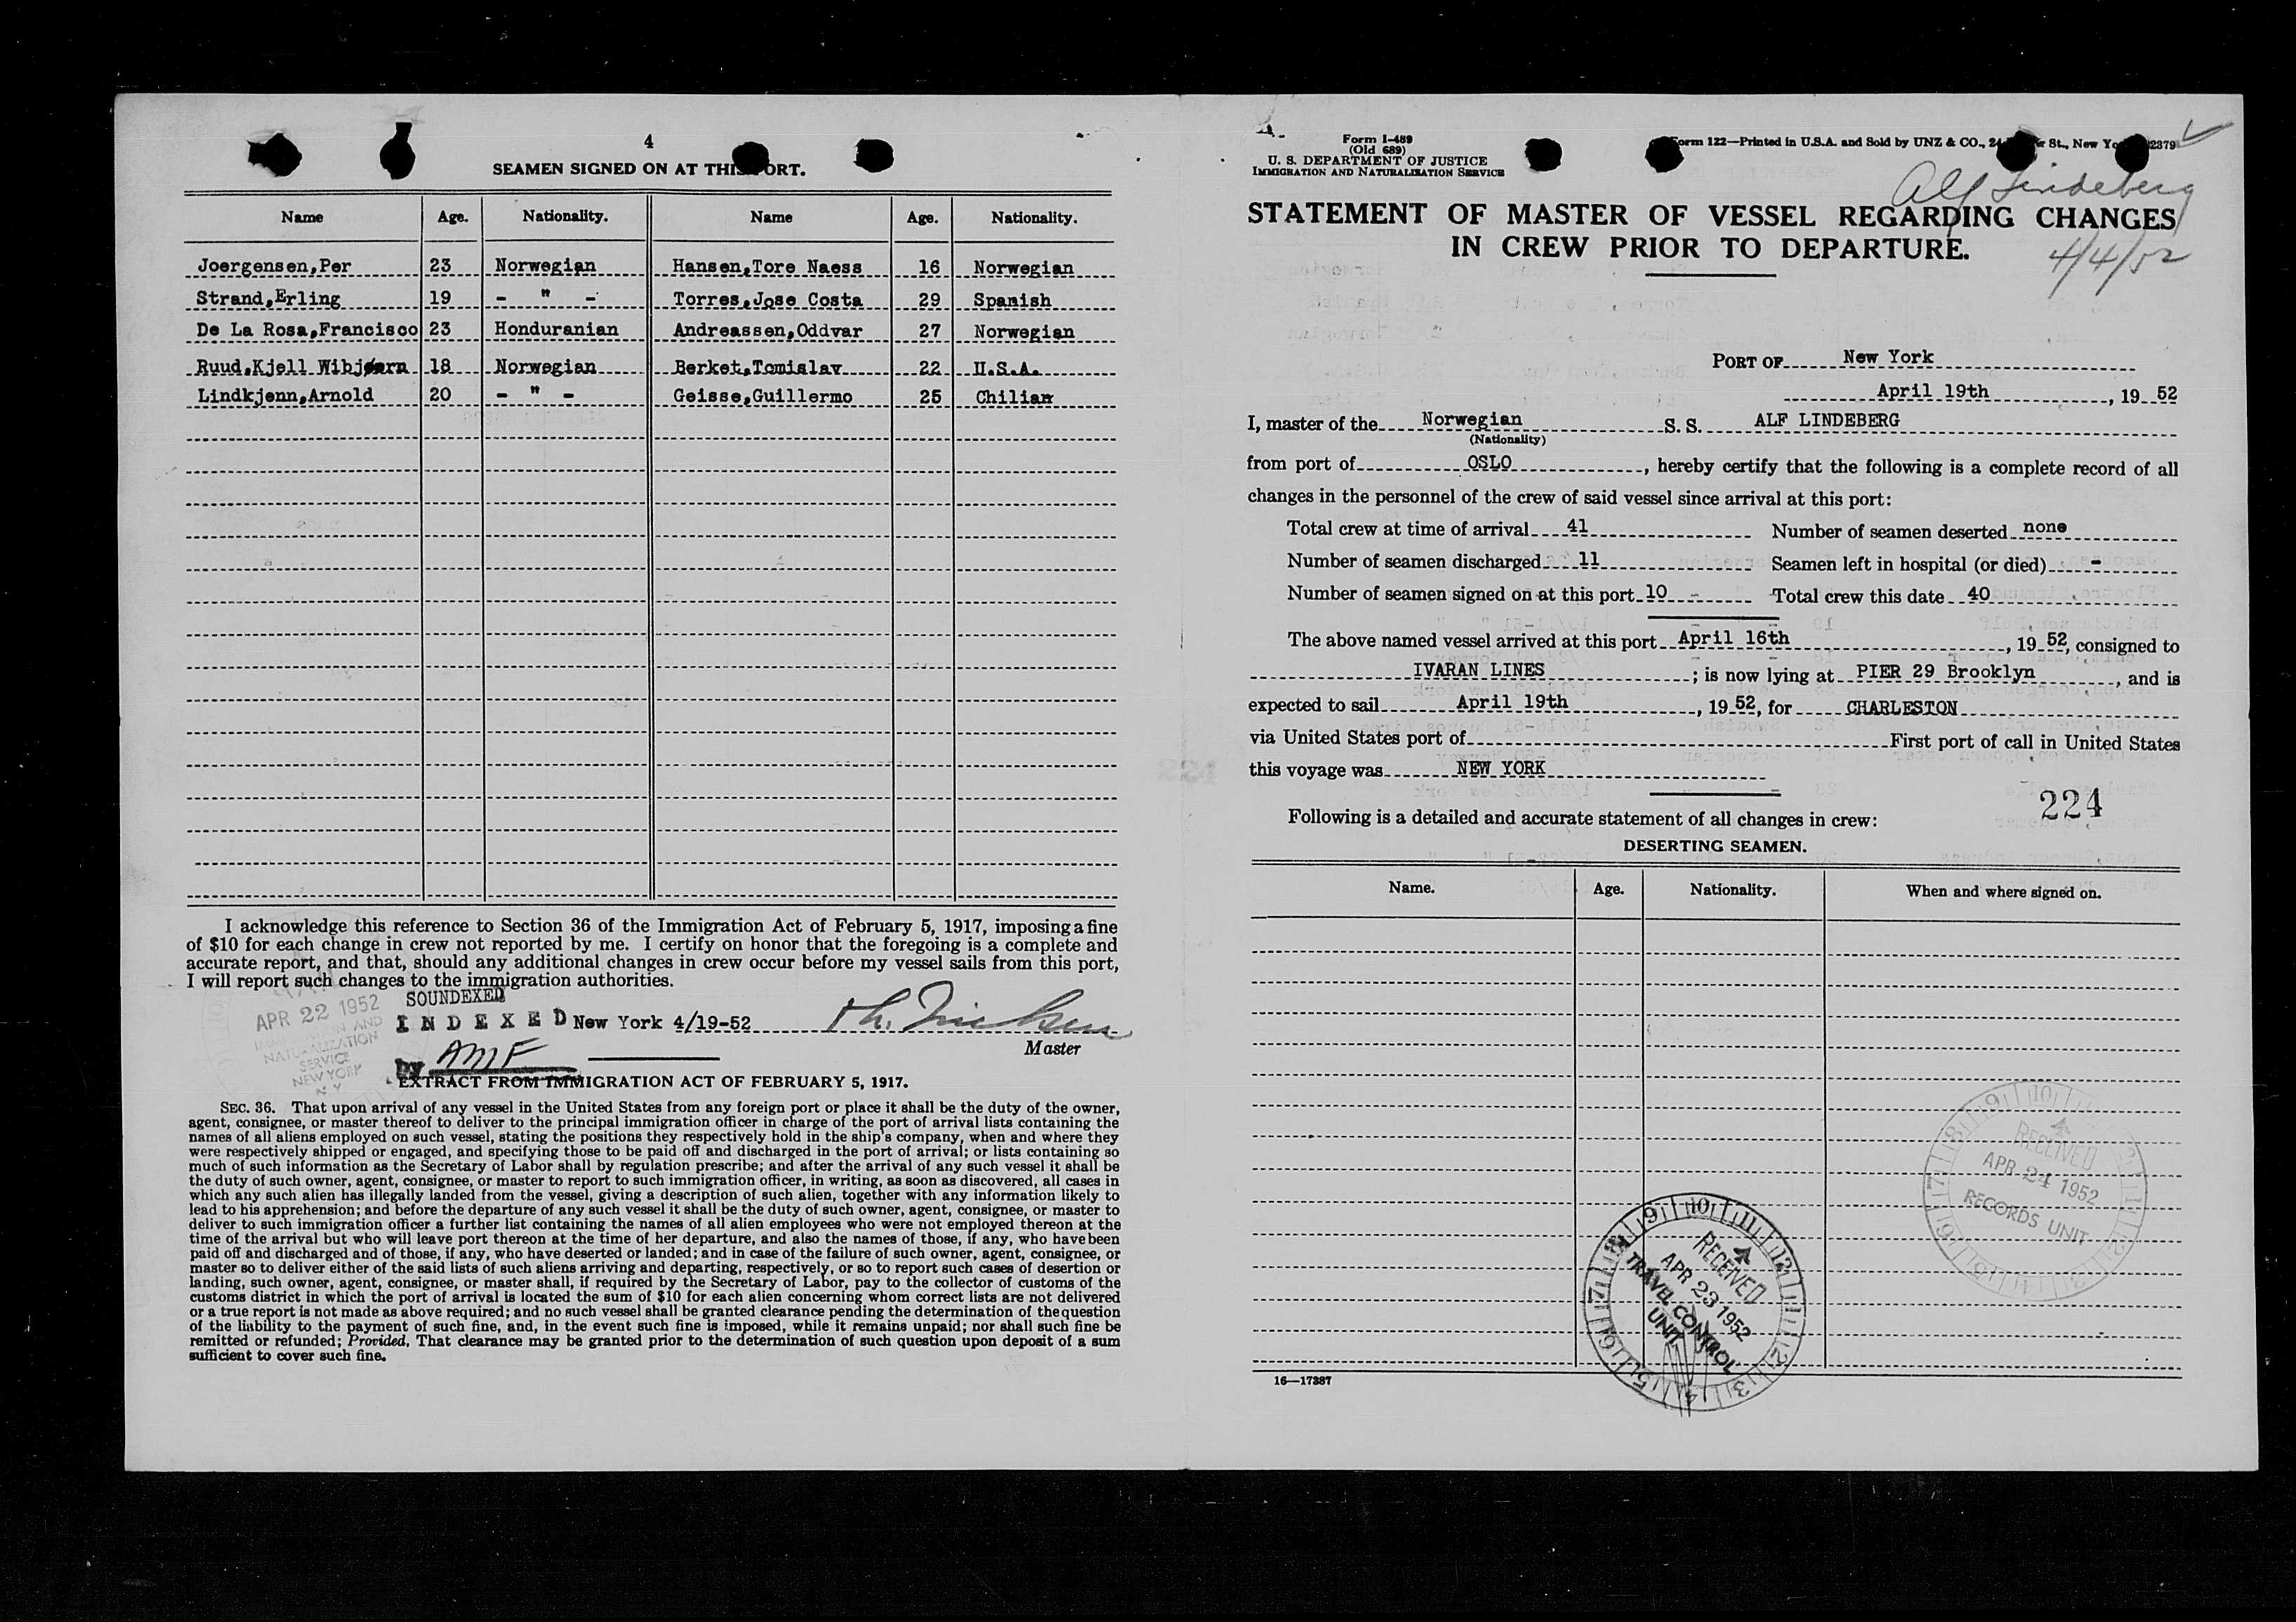 4
SEAMEN SIGNED ON AT THIS PORT.
Name Age. Nationality. Name Age. Nationality.
Joergensen,Per 23 Norwegian Hansen,Tore Naess 16 Norwegian
Strand,Erling 19 - " - Torres,Jose Costa 29 Spanish
De La Rosa,Francisco 23 Honduranian Andreassen,Oddvar 27 Norwegian
Ruud,Kjell Wibjøern 18 Norwegian Berket,Tomislav 22 U.S.A.
Lindkjenn,Arnold 20 - " - Geisse,Guillermo 25 Chilian
I acknowledge this reference to Section 36 of the Immigration Act of February 5, 1917, imposing a fine
of $10 for each change in crew not reported by me. I certify on honor that the foregoing is a complete and
accurate report, and that, should any additional changes in crew occur before my vessel sails from this port,
I will report such changes to the immigration authorities.
SOUNDEXED
APR 22 1952
INDEXED New York 4/19-52
NATURALIZATION
SERVICE
NEW YORK
N Y
Master
by AMF
EXTRACT FROM IMMIGRATION ACT OF FEBRUARY 5, 1917.
SEC. 36. That upon arrival of any vessel in the United States from any foreign port or place it shall be the duty of the owner,
agent, consignee, or master thereof to deliver to the principal immigration officer in charge of the port of arrival lists containing the
names of all aliens employed on such vessel, stating the positions they respectively hold in the ship's company, when and where they
were respectively shipped or engaged, and specifying those to be paid off and discharged in the port of arrival; or lists containing so
much of such information as the Secretary of Labor shall by regulation prescribe; and after the arrival of any such vessel it shall be
the duty of such owner, agent, consignee, or master to report to such immigration officer, in writing, as soon as discovered, all cases in
which any such alien has illegally landed from the vessel, giving a description of such alien, together with any information likely to
lead to his apprehension; and before the departure of any such vessel it shall be the duty of such owner, agent, consignee, or master to
deliver to such immigration officer a further list containing the names of all alien employees who were not employed thereon at the
time of the arrival but who will leave port thereon at the time of her departure, and also the names of those, if any, who have been
paid off and discharged and of those, if any, who have deserted or landed; and in case of the failure of such owner, agent, consignee, or
master so to deliver either of the said lists of such aliens arriving and departing, respectively, or so to report such cases of desertion or
landing, such owner, agent, consignee, or master shall, if required by the Secretary of Labor, pay to the collector of customs of the
customs district in which the port of arrival is located the sum of $10 for each alien concerning whom correct lists are not delivered
or a true report is not made as above required; and no such vessel shall be granted clearance pending the determination of the question
of the liability to the payment of such fine, and, in the event such fine is imposed, while it remains unpaid; nor shall such fine be
remitted or refunded; Provided, That clearance may be granted prior to the determination of such question upon deposit of a sum
sufficient to cover such fine.
Form I-489
(Old 689)
U. S. DEPARTMENT OF JUSTICE
IMMIGRATION AND NATURALIZATION SERVICE
Form 122—Printed in U.S.A. and Sold by UNZ & CO., 24 St., New York 2379
Alf Lindeberg
STATEMENT OF MASTER OF VESSEL REGARDING CHANGES
IN CREW PRIOR TO DEPARTURE.
4/4/52
PORT OF New York
April 19th, 19 52
I, master of the Norwegian S. S. ALF LINDEBERG
(Nationality)
from port of OSLO, hereby certify that the following is a complete record of all
changes in the personnel of the crew of said vessel since arrival at this port:
Total crew at time of arrival 41 Number of seamen deserted none
Number of seamen discharged 11 Seamen left in hospital (or died) -
Number of seamen signed on at this port 10 Total crew this date 40
The above named vessel arrived at this port April 16th, 19 52, consigned to
IVARAN LINES; is now lying at PIER 29 Brooklyn, and is
expected to sail April 19th, 19 52, for CHARLESTON
via United States port of First port of call in United States
this voyage was NEW YORK
224
Following is a detailed and accurate statement of all changes in crew:
DESERTING SEAMEN.
Name. Age. Nationality. When and where signed on.
RECEIVED
APR 24 1952
RECORDS UNIT
RECEIVED
APR 23 1952
TRAVEL CONTROL
UNIT
16—17387